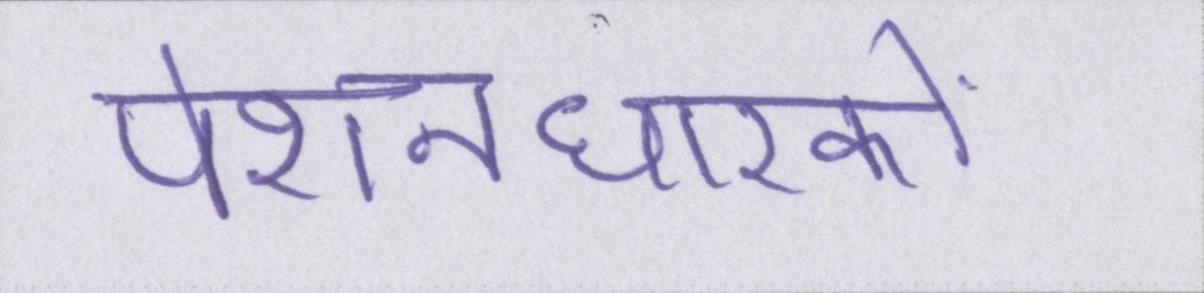 पेशनधारकों